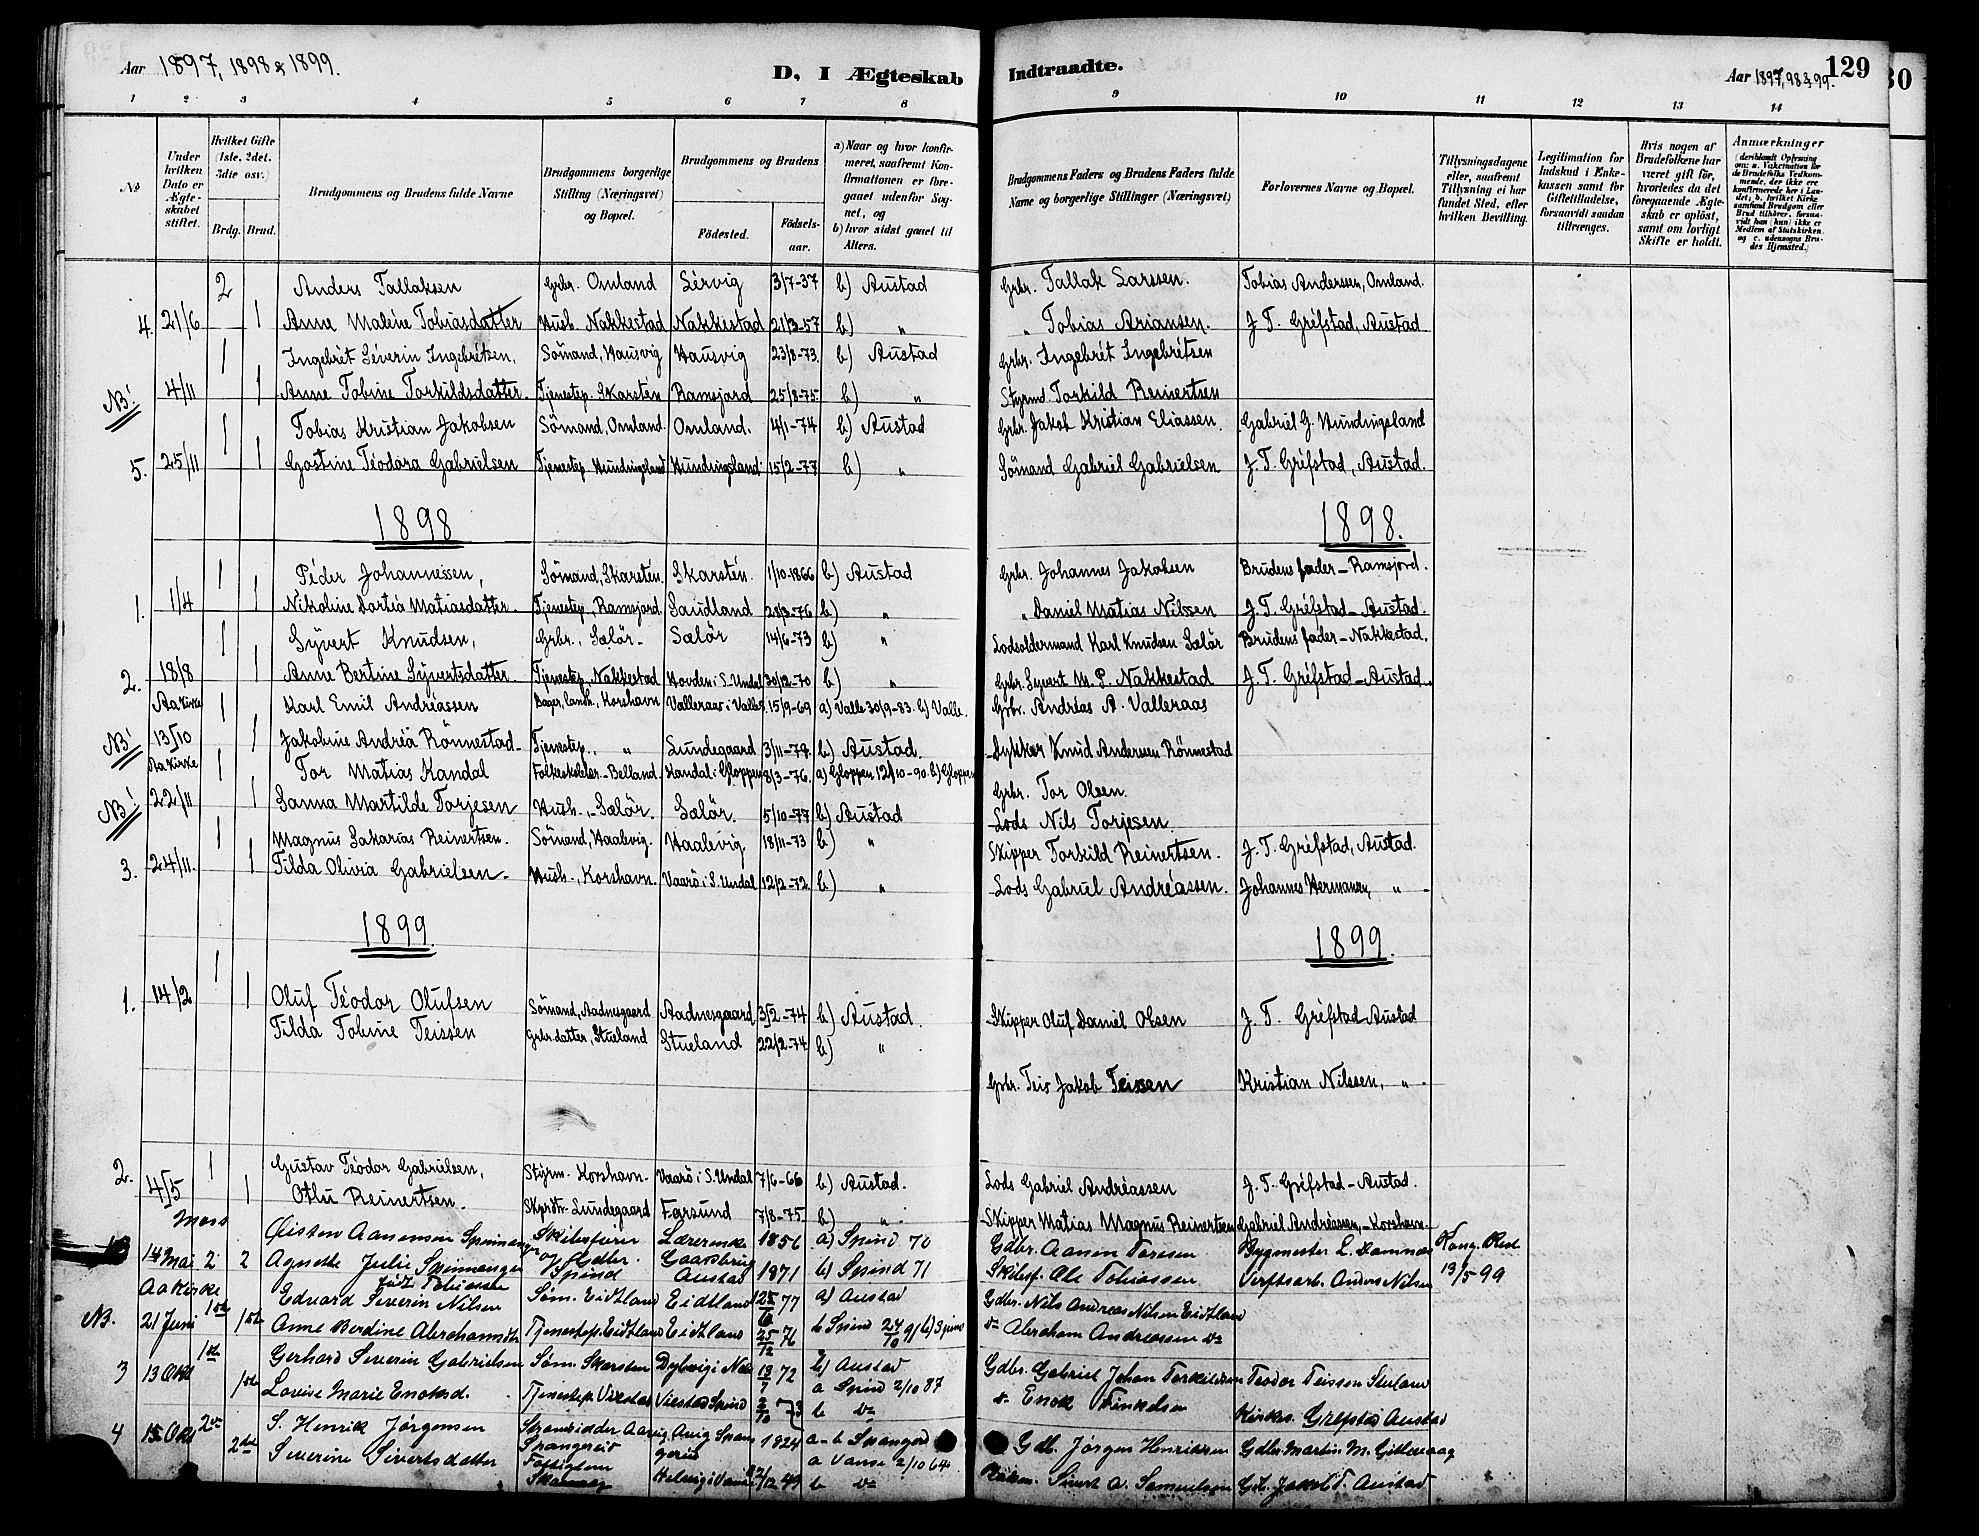 Aar 1897, 1898 & 1899.
D, I Ægteskab
Indtraadte.
Aar 1897, 98 & 99.
129
30
1 2 3 4 5 6 7 8 9 10 11 12 13 14
No
Under hvilken Dato er Ægteskabet stiftet.
Hvilket Gifte (1ste, 2det, 3die osv.)
Brdg. Brud.
Brudgommens og Brudens fulde Navne
Brudgommens borgerlige Stilling (Næringsvei) og Bopæl.
Brudgommens og Brudens
Fødested.
Fødselsaar.
a) Naar og hvor konfirmeret, saafremt Konfirmationen er foregaaet udenfor Sognet, og
b) hvor sidst gaaet til Alters.
Brudgommens Faders og Brudens Faders fulde Navne og borgerlige Stillinger (Næringsvei)
Forlovernes Navne og Bopæl.
Tillysningsdagene eller, saafremt Tillysning ei har fundet Sted, efter hvilken Bevilling.
Legitimation for Indskud i Enkekassen samt for Giftetilladelse, forsaavidt saadan tiltrænges.
Hvis nogen af Brudefolkene har været gift før, hvorledes da det foregaaende Ægteskab er opløst, samt om lovligt Skifte er holdt.
Anmærkninger
(deriblandt Oplysning om: a. Vakcination for de Brudefolks Vedkommende, der ikke ere konfirmerede her i Landet; b. hvilket Kirkesamfund Brudgom eller Brud tilhører, forsaavidt han (hun) ikke er Medlem af Statskirken, og c. udensogns Brudes Hjemsted.)
2 Anders Tallaksen Grbr. Omland Lervig 3/7-37 b) Austad Grbr. Tallak Larssen. Tobias Anderssen, Omland.
4. 21/6 1 Anne Maléne Tobiasdatter Hush. Nakkestad Nakkestad 21/3-57 b) " " Tobias Ariansen. J. T. Gréfstad, Austad
1 Ingebrét Séverin Ingebrétsen, Sömand, Hausvig Hausvig 23/8-73. b) Austad Grbr. Ingebrét Ingebrétsen
NB! 4/11 1 Anne Tobine Torkildsdatter. Tjenestep. Skarstén Ramsjord 25/8-75. b) " Styrmd Torkild Reinertsen
1 Tobias Kristian Jakobsen Sömand, Omland. Omland. 14/1-74 b) Austad Grbr. Jakob Kristian Eliassen. Gabriel G. Hundingsland
5. 25/11 1 Gostine Téodora Gabrielsen Tjenestep. Hundingsland Hundingsland 15/2-77 b) " Sömand Gabriel Gabrielsen J. T. Gréfstad, Austad.
1898
1898.
1 Péder Johannessen, Sömand, Skarsten. Skarstén. 1/10-1866 b) Austad Grbr. Johannes Jakobsen Brudens fader - Ramsjord.
1. 1/4 1 Nikoline Dortéa Matiasdatter. Tjenestep. Ramsjord. Saudland 28/3-76 b) " " Daniel Matias Nilssen J. T. Gréfstad - Austad.
1 Syvert Knudsen, Grbr., Sælör - Sælör 14/6-73 b) " Lodsoldermand Karl Knudsen Sælör Brudens fader - Nakkestad.
2. 18/8 1 Anne Bertine Syvertsdatter Tjenestep, Nakkestad Hovden i S. Undal 30/12-70 b) " Grbr. Syvert M. P. Nakkestad J. T. Gréfstad - Austad.
Aa Kirke 1 Karl Emil Andréassen Bager, Landh., Korshavn Valleraas i Valle. 15/9-69 a) Valle 30/9-83. b) Valle. Grbr. Andréas A. Valleraas
NB! 13/10 1 Jakobine Andréa Rönnestad - Tjenestep., " Lundegaard 3/11-74. b) Austad. Dykker Knud Anderssen Rönnestad
Aa Kirke 1 Tor Matias Kandal Folkeskolelær. - Belland. Kandal i Gloppen 8/3-76. a) Gloppen 12/10-90. b) Gloppen Grbr. Tor Olsen.
NB! 22/11 1 Sanna Martilde Torjesen Hush., - Sælör. Sælör. 5/10-77 b) Austad Lods Nils Torjesen.
1 Magnus Sakarias Reinertsen. Sömand, Haalevig. Haalevig. 18/11-73 b) " Skipper Torkild Reinertsen. J. T. Gréfstad, Austad.
3. 24/11. 1 Tilda Olivia Gabrielsen - Hush., Korshavn. Vaarö i S. Undal 12/2-72. b) " Lods Gabriel Andréassen. Johannes Hermansen, "
1899.
1899.
1. 14/2 1 1 Oluf Téodor Olufsen Sömand, Aadnesgaard Aadnesgaard 3/2-74 b) Austad. Skipper Oluf Daniel Olsen J. T. Gréfstad Austad
Tilda Tobine Teissen Grbr.datter, Stueland Stueland 22/2-74 b) " Grbr. Teis Jakob Teissen Kristian Nilssen, "
2. 4/5 1 Gustav Téodor Gabrielsen, Styrm. Korshavn. Vaarö i S. Undal 7/6-66 b) Austad. Lods Gabriel Andréassen J. T. Gréfstad - Austad.
1 Reinertsen. Lundegaard Farsund 7/8-75. b) " Skipper Matias Magnus Reinertsen Gabriel Andréassen, - Korshavn.
14 Mai 2 2 Aanensen Skibsfører og Gdbr. Spind 1856 a) Spind 70 Gdbr. Aanen Bygmester L. Kong. Res. 19/5 99
Agnethe Julie født Tobiassen Austad 1871 b) Spind 71 Skibsf. Ole Tobiassen Verftsarb. Anders Nilsen
Aa Kirke 1ste Edvard Severin Nilsen Søm. Eidtland Eidtland 77 a) Austad Gdbr. Nils Andreas Nilsen Eidtland
NB. 21 Juni 1ste Anne Berdine Abrahamsdtr Tjenestep. Eidtland Eidtland 25/12 76 b Spind b) Spind do Abraham Andreassen do
1ste Gerhard Severin Gabrielsen Søm. Skarsten 13/7 72 b) Austad Gdbr. Gabriel Johan Torkildsen Teodor Teissen Stueland
3 13 Okt 1ste Lovise Marie Enoksd. Tjenestep. Viestad Viestad Spind 2/10 73 a Spind 2/10 87 b do do Enok Kirkes. Grefstad Austad
4 15 Okt 2de S. Henrik Jørgensen Spangereid 1824 a-b Spangereid Gdb. Jørgen Henriksen Gdbr. Martin M.
2de Severine Sivertsdatter Fattiglem 49 a Vanse 2/10 64 b do Sivert A. Samuelsen Gdb. Jakob T. Austad